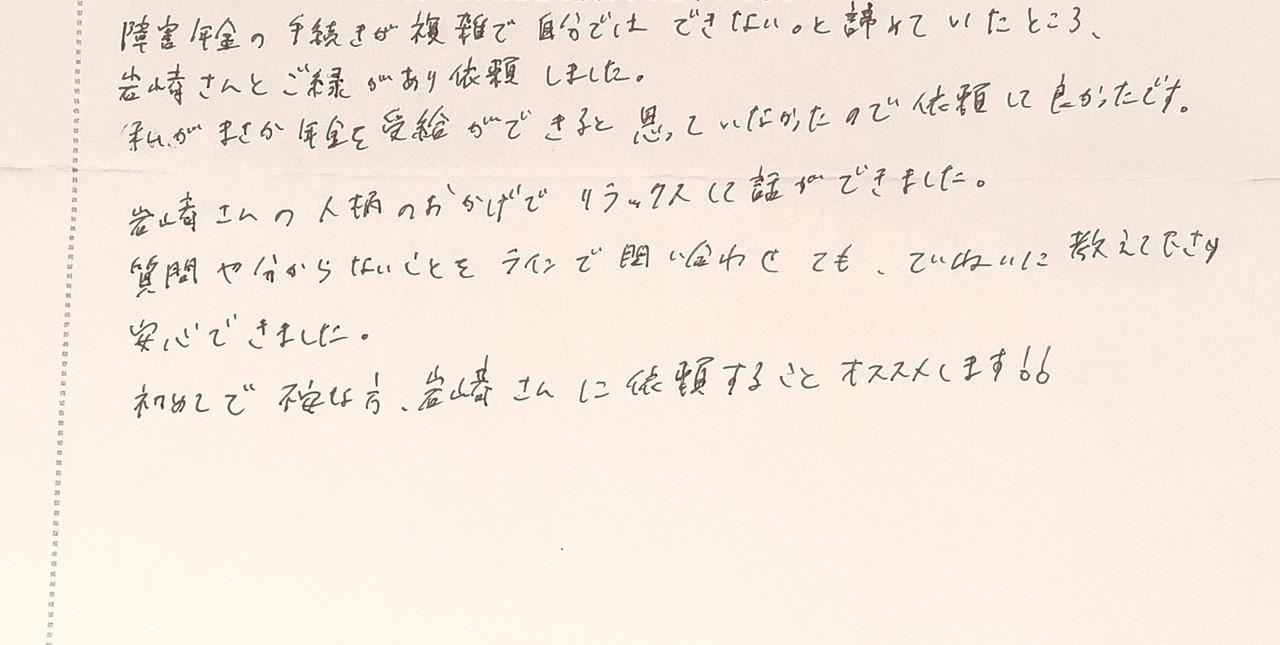 障害年金の手続きが複雑で自分ではできない。と諦めていたところ、
岩崎さんとご縁があり依頼しました。
私がまさか年金を受給ができると思っていなかったので依頼して良かったです。
岩崎さんの人柄のおかげでリラックスして話ができました。
質問や分からないことをラインで問い合わせても、ていねいに教えて下さり
安心できました。
初めてで不安な方、岩崎さんに依頼することオススメします!!